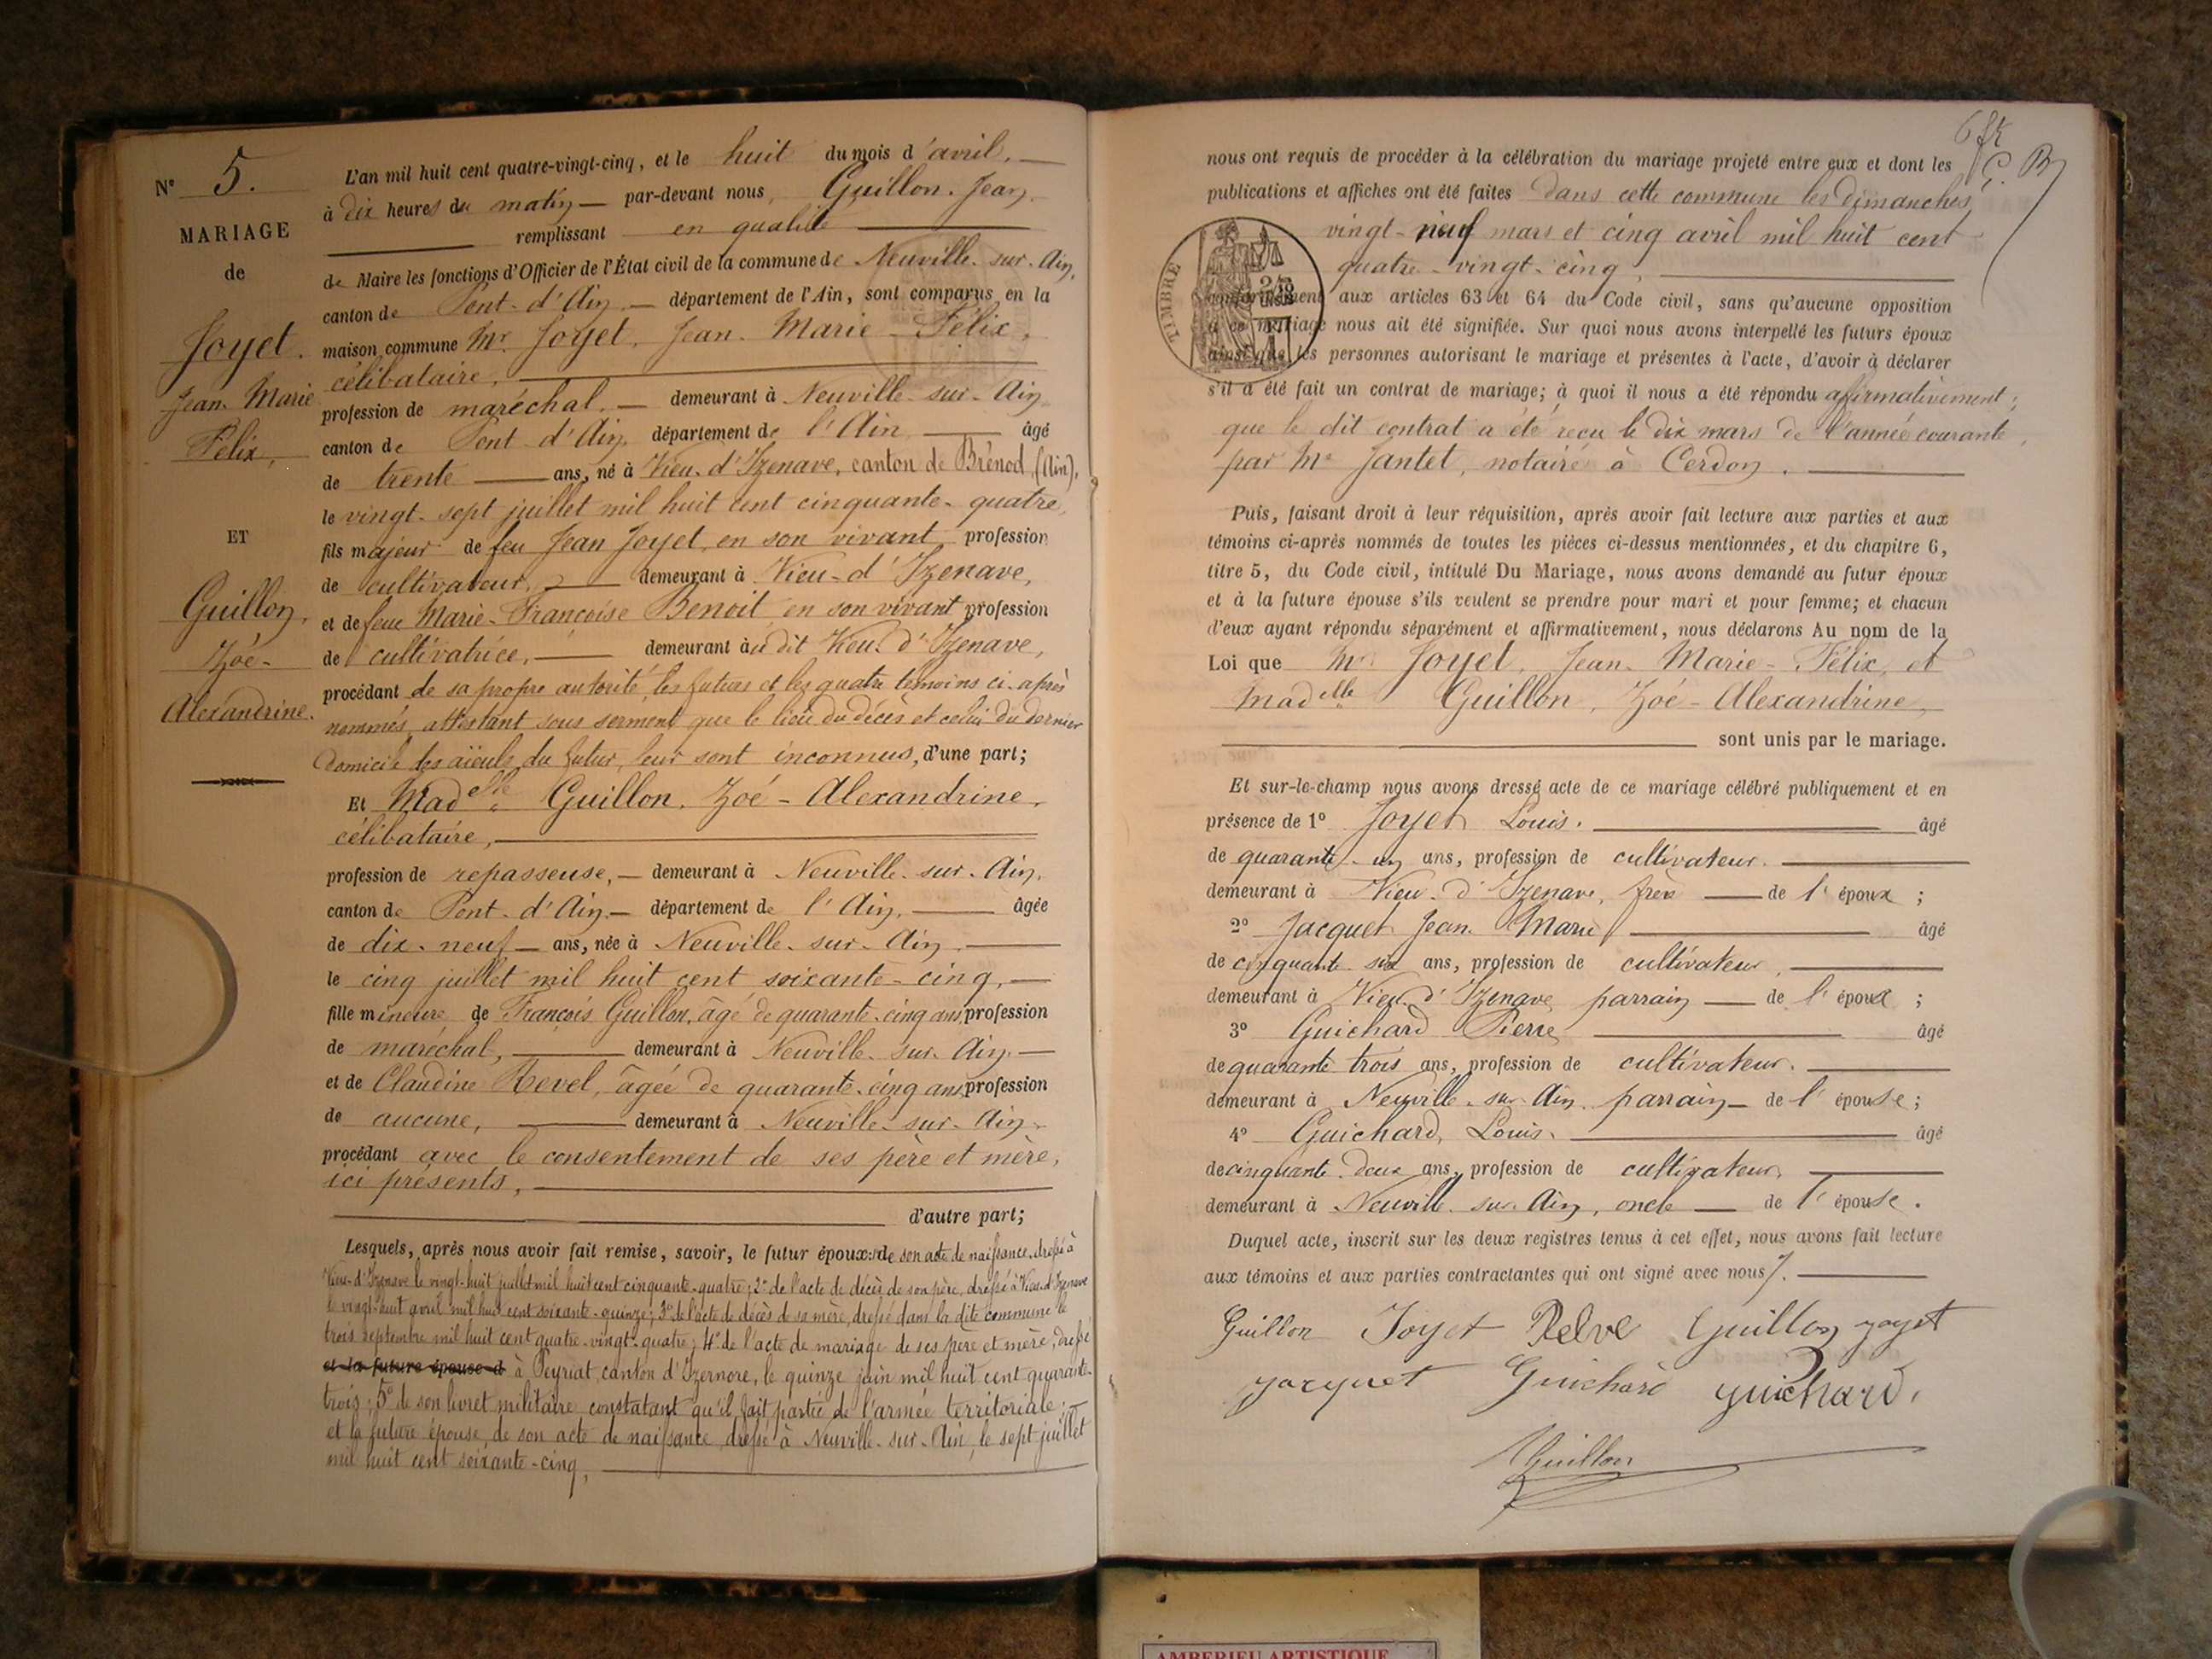 N° 5.
MARIAGE
de
Joyet.
Jean Marie
Félix,
ET
Guillon,
Zoé-
Alexandrine.
L'an mil huit cent quatre-vingt-cinq, et le huit du mois d'avril,
à dix heures du matin par-devant nous, Guillon Jean,
remplissant en qualité
de Maire les fonctions d'Officier de l'État civil de la commune de Neuville-sur-Ain,
canton de Pont-d'Ain, département de l'Ain, sont comparus en la
maison commune Mr Joyet, Jean-Marie-Félix,
célibataire,
profession de maréchal, demeurant à Neuville-sur-Ain
canton de Pont d'Ain, département de l'Ain âgé
de trente ans, né à Vieu-d'Izenave, canton de Brénod (Ain),
le vingt-sept juillet mil huit cent cinquante-quatre,
fils majeur de feu Jean Joyet, en son vivant profession
de cultivateur, demeurant à Vieu-d'Izenave,
et de feue Marie-Françoise Benoit en son vivant profession
de cultivatrice, demeurant au dit Vieu-d'Izenave,
procédant de sa propre autorité, les futurs et les quatre témoins ci-après
nommés, attestant sous serment que le lieu du décès et celui du dernier
domicile des aïeuls du futur, leur sont inconnus, d'une part;
Et Madelle Guillon, Zoé-Alexandrine,
célibataire,
profession de repasseuse, demeurant à Neuville-sur-Ain,
canton de Pont-d'Ain, département de l'Ain, âgée
de dix-neuf ans, née à Neuville-sur-Ain,
le cinq juillet mil huit cent soixante-cinq,
fille mineure de François Guillon, âgé de quarante-cinq ans, profession
de maréchal, demeurant à Neuville-sur-Ain,
et de Claudine Revel, âgée de quarante-cinq ans, profession
de aucune, demeurant à Neuville-sur-Ain,
procédant avec le consentement de ses père et mère,
ici présents,
d'autre part;
Lesquels, après nous avoir fait remise, savoir, le futur époux: 1° de son acte de naissance, dressé à
Vieu-d'Izenave le vingt-huit juillet mil huit cent cinquante-quatre; 2° de l'acte de décès de son père, dressé à Vieu-d'Izenave
le vingt-huit avril mil huit cent soixante-quinze; 3° de l'acte de décès de sa mère, dressé dans la dite commune le
trois septembre mil huit cent quatre-vingt-quatre; 4° de l'acte de mariage de ses père et mère, dressé
et la future épouse d à Peyriat, canton d'Izernore, le quinze juin mil huit cent quarante-
trois; 5° de son livret militaire constatant qu'il fait partie de l'armée territoriale;
et la future épouse, de son acte de naissance dressé à Neuville-sur-Ain, le sept juillet
mil huit cent soixante-cinq,
nous ont requis de procéder à la célébration du mariage projeté entre eux et dont les
publications et affiches ont été faites dans cette commune les dimanches
vingt-neuf mars et cinq avril mil huit cent
quatre-vingt-cinq,
TIMBRE
conformément aux articles 63 et 64 du Code civil, sans qu'aucune opposition
à ce mariage nous ait été signifiée. Sur quoi nous avons interpellé les futurs époux
ainsi que les personnes autorisant le mariage et présentes à l'acte, d'avoir à déclarer
s'il a été fait un contrat de mariage; à quoi il nous a été répondu affirmativement;
que le dit contrat a été reçu le dix mars de l'année courante,
par Me Jantet, notaire à Cerdon.
Puis, faisant droit à leur réquisition, après avoir fait lecture aux parties et aux
témoins ci-après nommés de toutes les pièces ci-dessus mentionnées, et du chapitre 6,
titre 5, du Code civil, intitulé Du Mariage, nous avons demandé au futur époux
et à la future épouse s'ils veulent se prendre pour mari et pour femme; et chacun
d'eux ayant répondu séparément et affirmativement, nous déclarons Au nom de la
Loi que Mr Joyet, Jean-Marie-Félix, et
Madelle Guillon, Zoé-Alexandrine,
sont unis par le mariage.
Et sur-le-champ nous avons dressé acte de ce mariage célébré publiquement et en
présence de 1° Joyet Louis. âgé
de quarante-un ans, profession de cultivateur.
demeurant à Vieu-d'Izenave, frère de l'époux;
2° Jacquet Jean Marie âgé
de cinquante six ans, profession de cultivateur,
demeurant à Vieu-d'Izenave parrain de l'époux;
3° Guichard Pierre âgé
de quarante trois ans, profession de cultivateur.
demeurant à Neuville-sur-Ain parrain de l'épouse;
4° Guichard, Louis. âgé
de cinquante deux ans, profession de cultivateur,
demeurant à Neuville-sur-Ain, oncle de l'épouse.
Duquel acte, inscrit sur les deux registres tenus à cet effet, nous avons fait lecture
aux témoins et aux parties contractantes qui ont signé avec nous.
Guillon Joyet Revel Guillon Joyet
Jacquet Guichard Guichard.
Guillon
AMBERIEU ARTISTIQUE